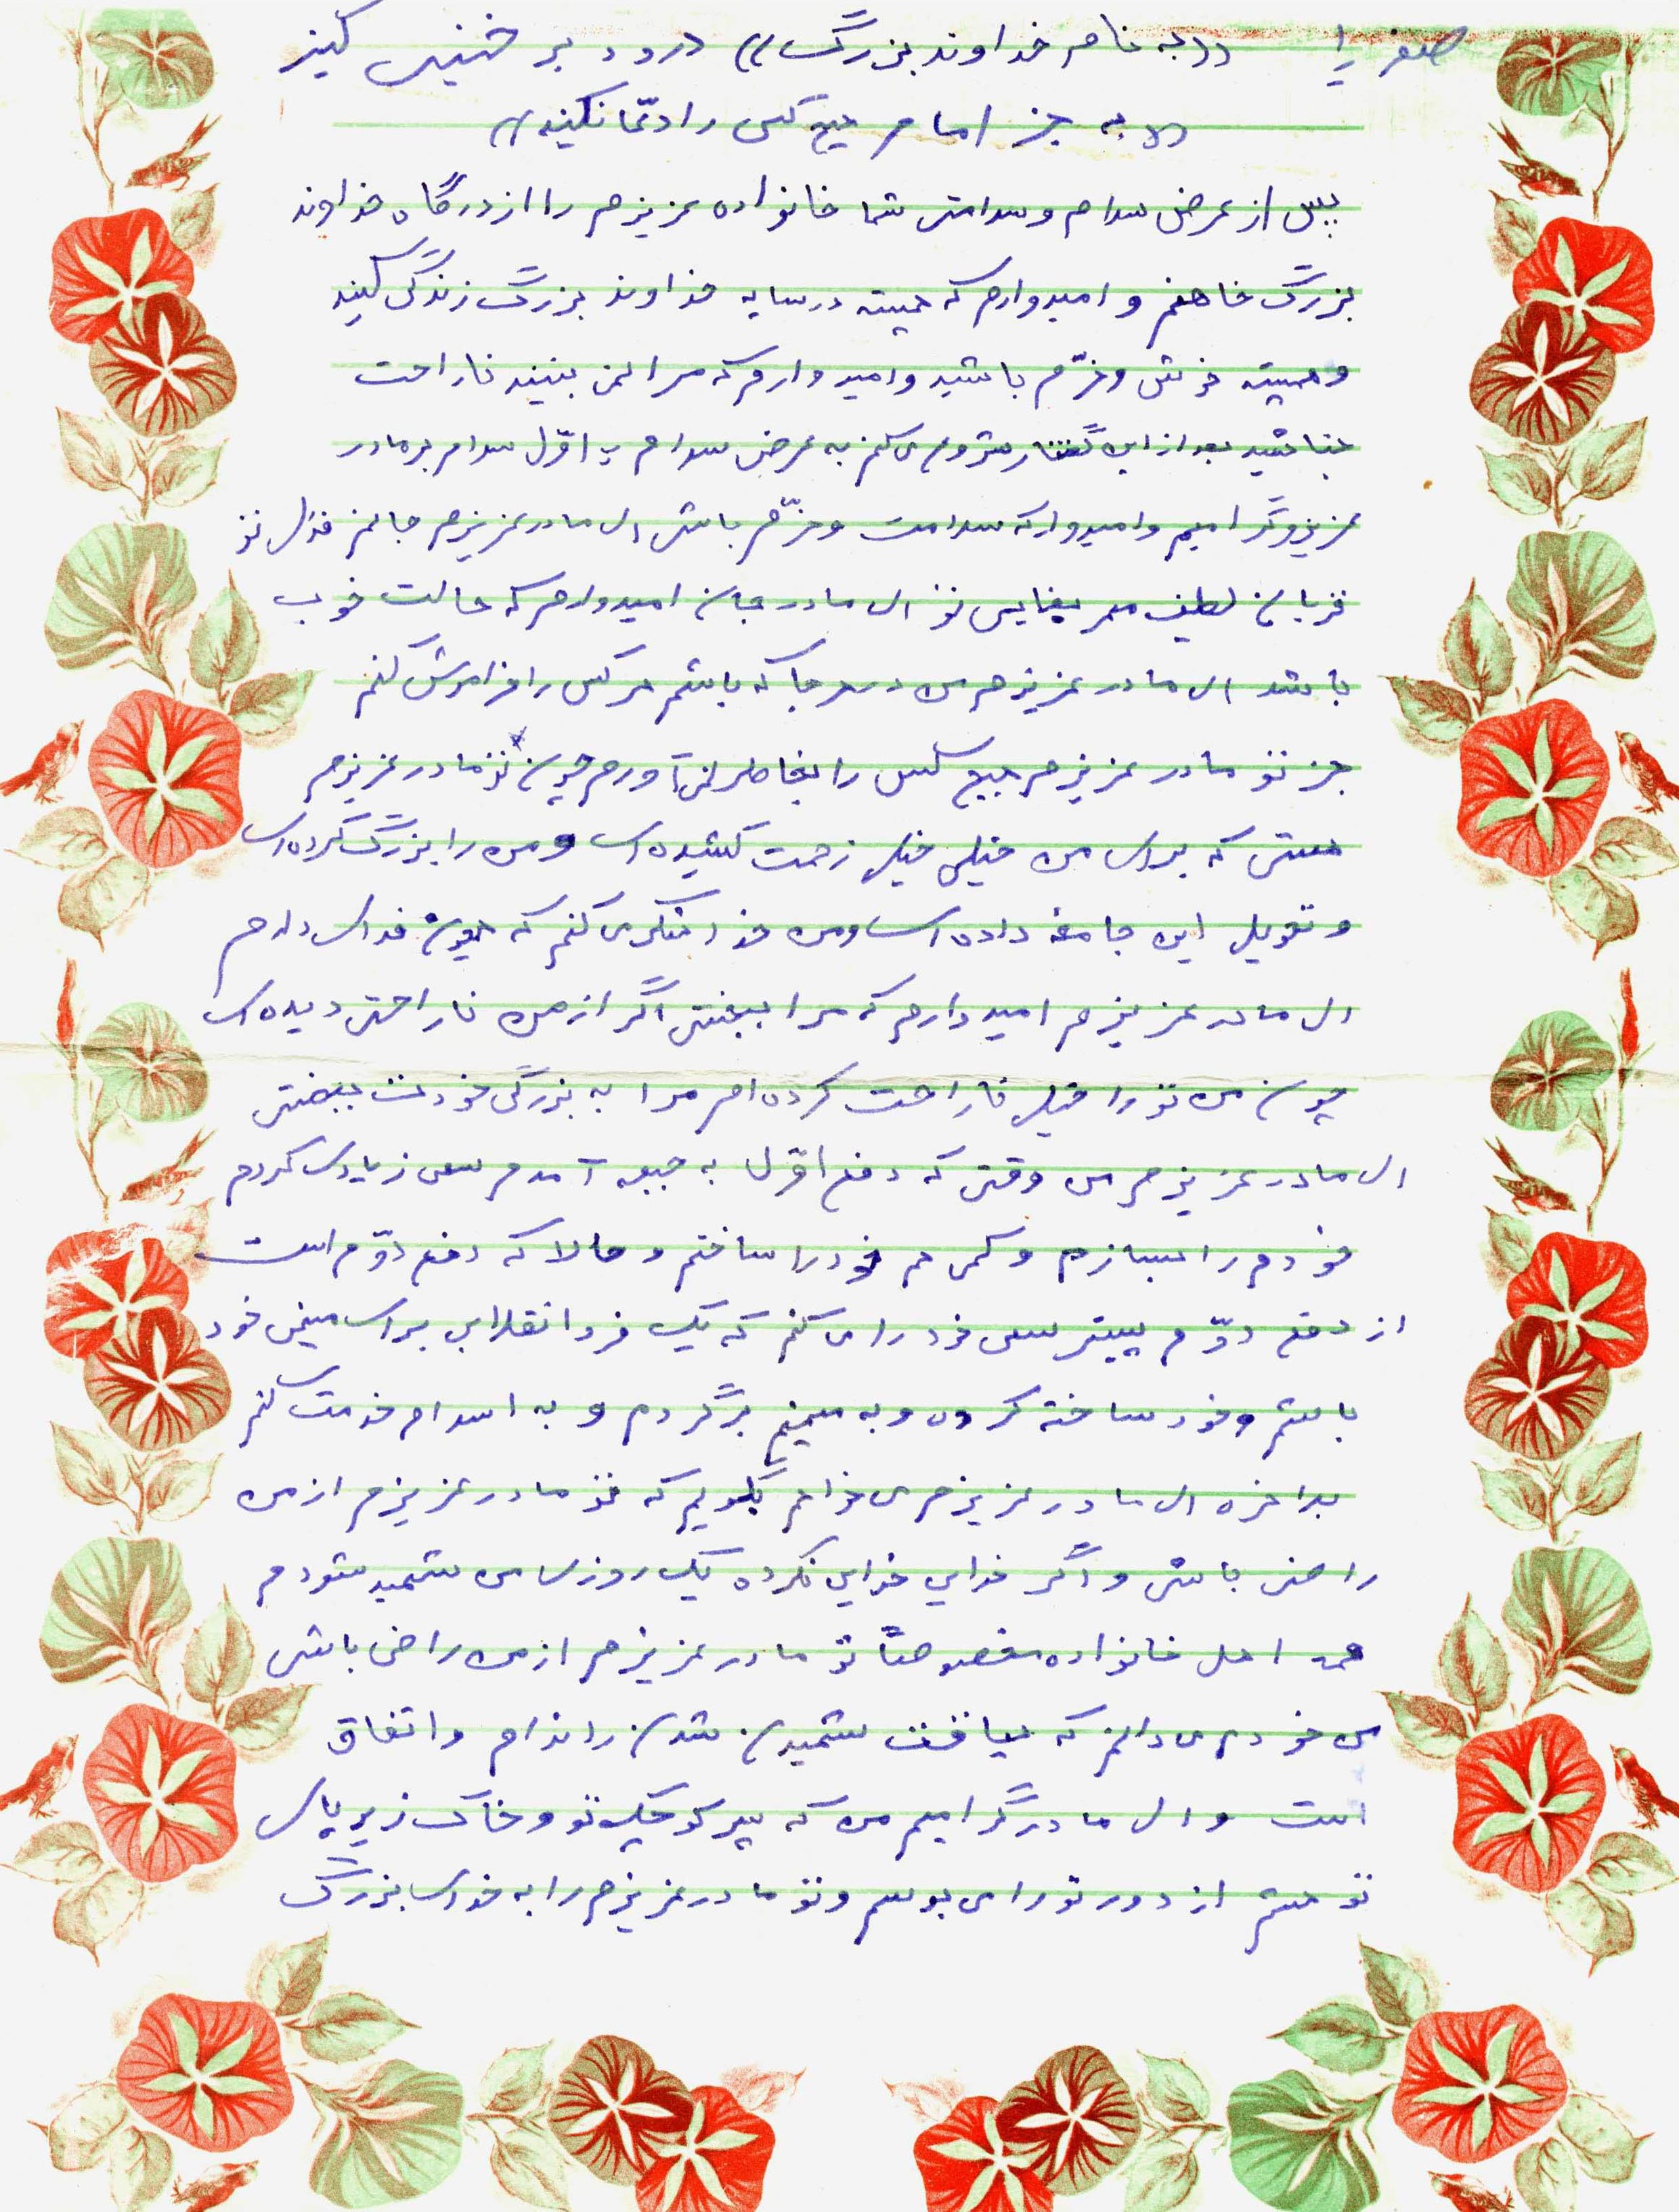 صفر ۱ ((به نام خداوند بزرگ)) درود بر خمینی کبیر
((به جز امام هیچ کس را دعا نکنید))
پس از عرض سلام و سلامتی شما خانواده عزیزم را از درگاه خداوند
بزرگ خاهنم و امیدوارم که همیشه در سایه خداوند بزرگ زندگی کنید
و همیشه خوش و خرّم باشید و امیدوارم که مرا نمی بینید ناراحت
نباشید بعد از این گفتار شروع می کنم به عرض سلام اوّل سلام بر مادر
عزیز و گرامیم و امیدوار که سلامت و خرّم باشی ای مادر عزیزم جانم فدای تو
قربان لطف تو ای مادر جان امیدوارم که حالت خوب
باشد ای مادر عزیزم من در هر جا که باشم هر کس را فراموش کنم
جز تو مادر عزیزم هیچ کس را بخاطر نمی آورم چون تو مادر عزیزم
هستی که برای من خیلی خیلی زحمت کشیده ای و من را بزرگ کرده ای
و تحویل این جامعه داده ای و من خدا شکر می کنم که همچون خدای دارم
ای مادر عزیزم امید دارم که مرا ببخشی اگر از من ناراحتی دیده ای
چون من تو را خیلی ناراحت کرده ام مرا به بزرگی خودت ببخشی
ای مادر عزیزم من وقتی که دفع اوّل به جبهه آمدم سعی زیادی کردم
خودم را بسازم و کمی هم خود را ساختم و حالا که دفع دوّم است
از دفع دوّم بیشتر سعی خود را می کنم که یک فرد انقلابی برای میهن خود
باشم و خود ساخته گردم و به میهنم برگردم و به اسلام خدمت کنم
بلاخره ای مادر عزیزم می خواهم بگویم که تو مادر عزیزم از من
راضی باشی و اگر خدایی خدایی نکرده یک روزی من شهید شودم
همه اهل خانواده مخصوصاً تو مادر عزیزم از من راضی باشی
من خودم می دانم که لیاقت شهیدن شدن را ندام و اتفاق
است و ای مادر گرامیم من که پسر کوچک تو و خاک زیر پای
تو هستم از دور تو را می بوسم و تو مادر عزیزم را به خدای بزرگ